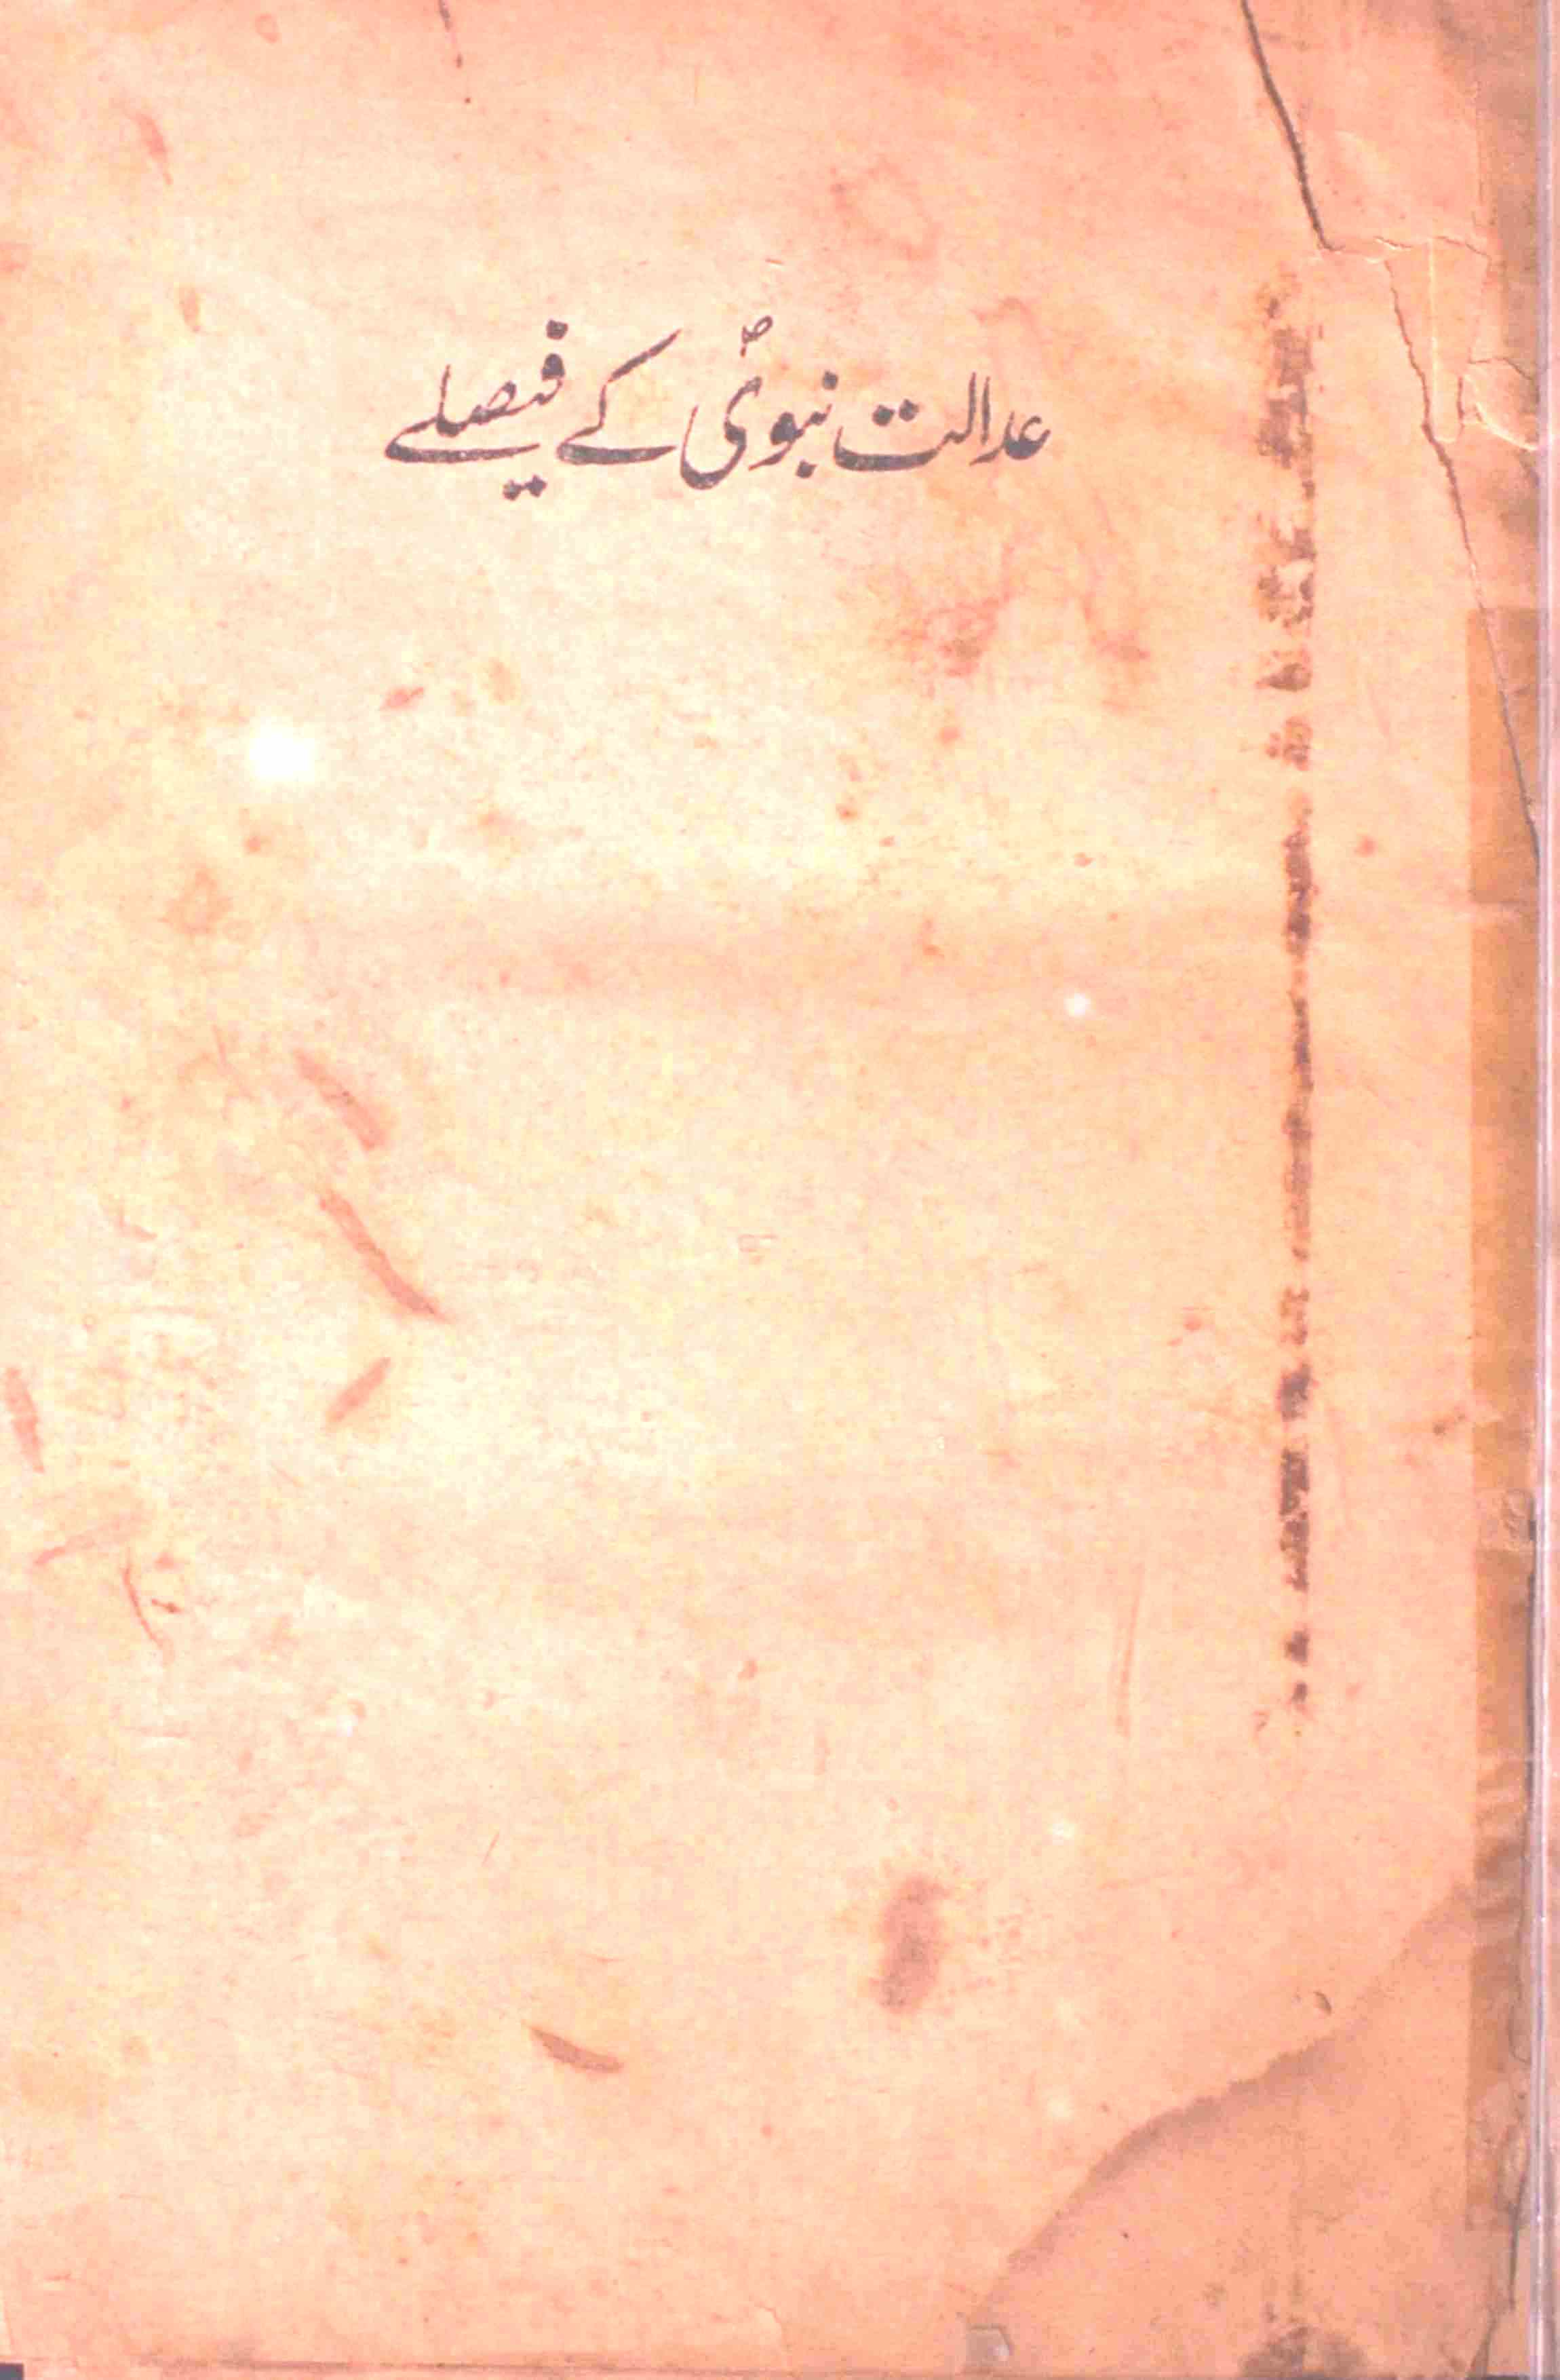 عدالت نبویؐ کے فیصلے